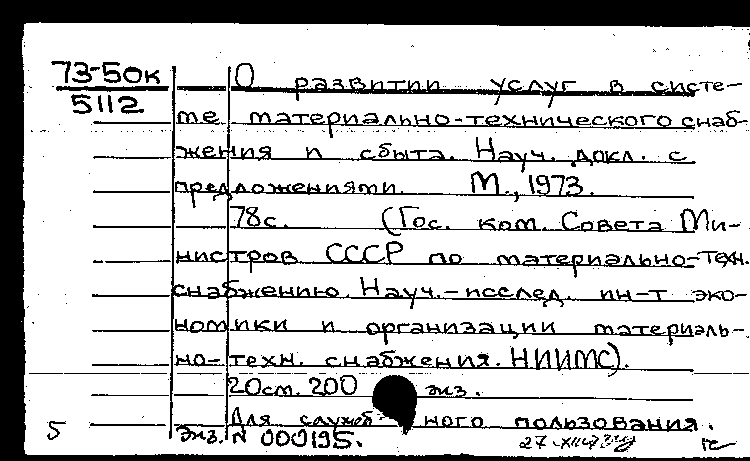 73-50к
5112
О развитии услуг в систе-
ме материально-технического снаб-
жения и сбыта. Науч. докл. с
предложениями. М., 1973.
78с. (Гос. ком. Совета Ми-
нистров СССР по материально-техн.
снабжению. Науч.-исслед. ин-т эко-
номики и организации материаль-
но-техн. снабжения. НИИМС).
20см. 200 экз.
Для служебного пользования.
Экз. N 000195.
5